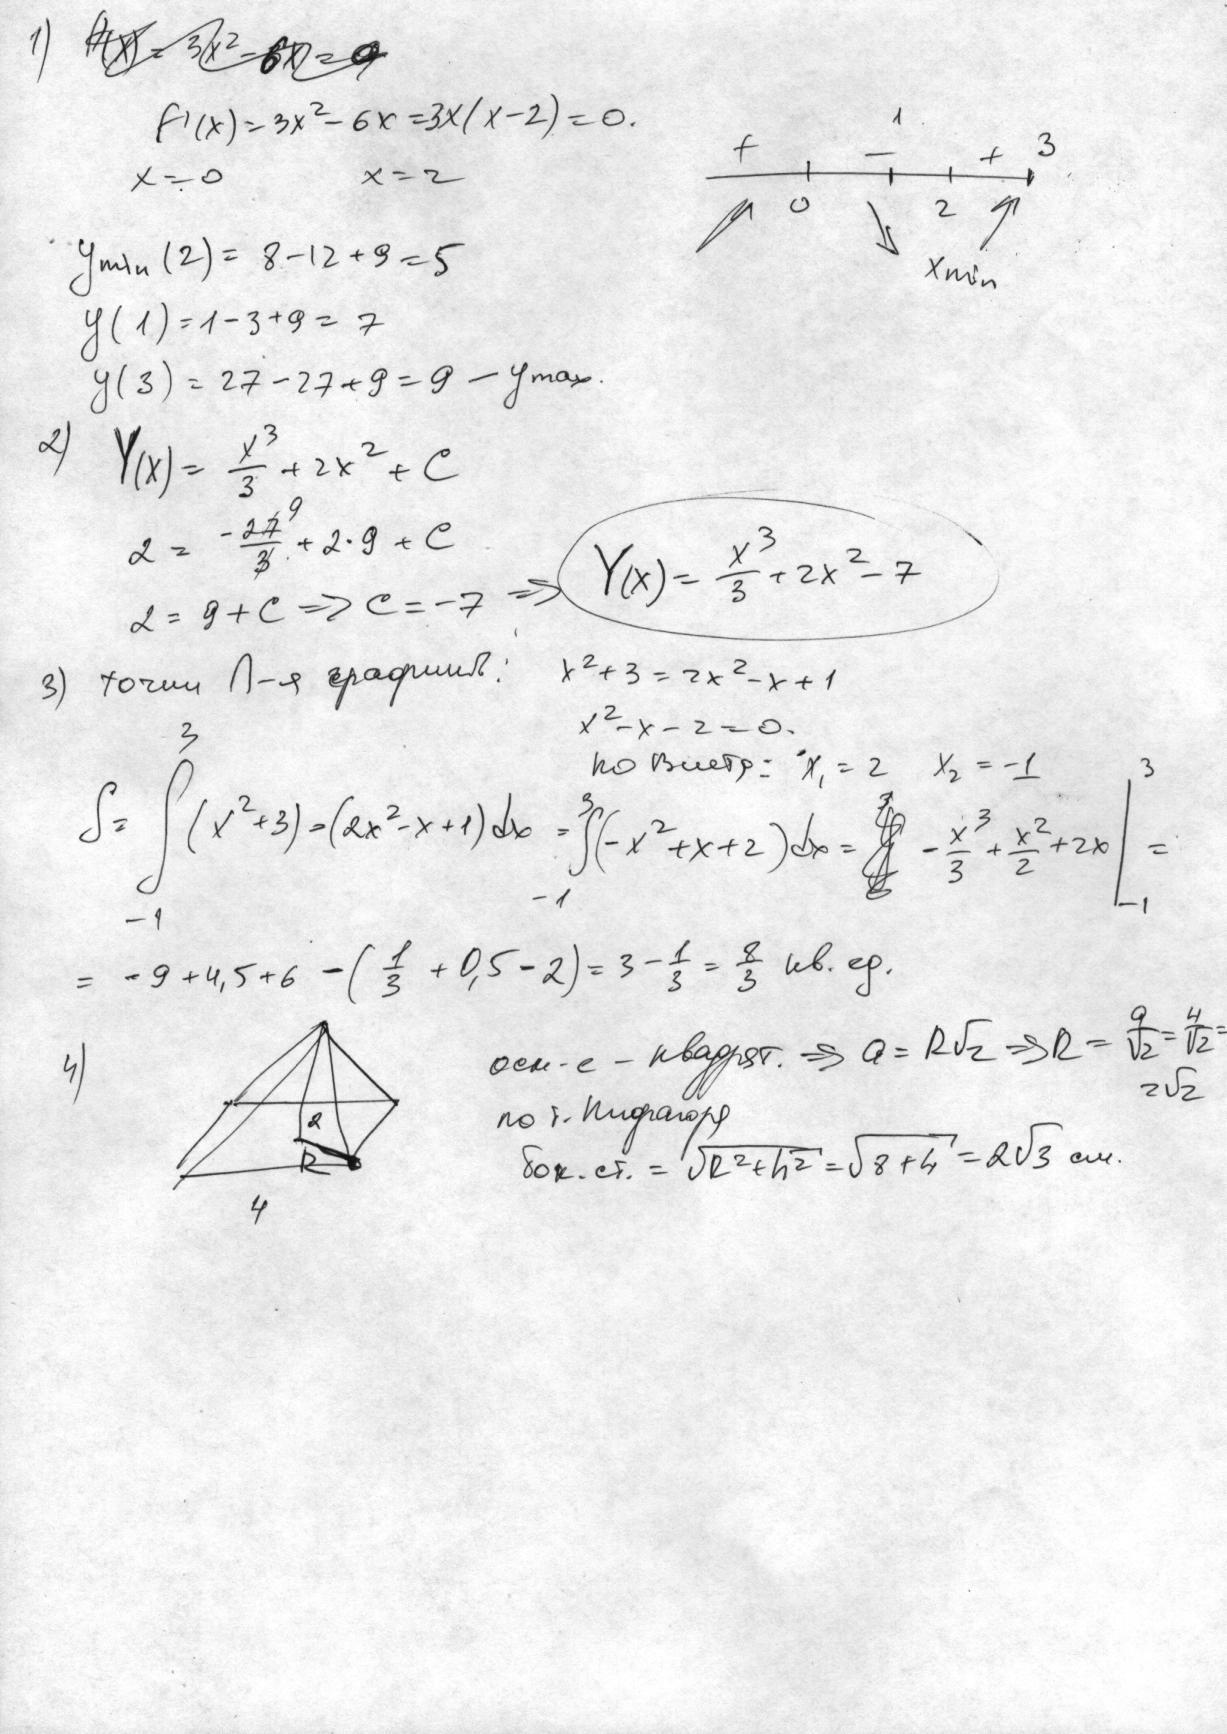 1) f'(x) = 3x² - 6x = 0
f'(x) = 3x² - 6x = 3x(x-2) = 0.
x = 0    x = 2
+ - 1 + 3
0 2
x min
y min (2) = 8 - 12 + 9 = 5
y(1) = 1 - 3 + 9 = 7
y(3) = 27 - 27 + 9 = 9 - y max.
2) Y(x) = x³/3 + 2x² + C
2 = -27/3 9 + 2·9 + C
2 = 9 + C => C = -7 => Y(x) = x³/3 + 2x² - 7
3) точки П-я графиков: x² + 3 = 2x² - x + 1
x² - x - 2 = 0.
по Виета: x₁ = 2  x₂ = -1
S = ∫₋₁³ (x² + 3) - (2x² - x + 1) dx = ∫₋₁³ (-x² + x + 2) dx = -x³/3 + x²/2 + 2x |₋₁³ =
= -9 + 4,5 + 6 - (1/3 + 0,5 - 2) = 3 - 1/3 = 8/3 кв. ед.
4) осн-е - квадрат. => a = R√2 => R = a/√2 = 4/√2 =
= 2√2
по т. Пифагора
бок. ст. = √R²+h² = √8+4 = 2√3 см.
2
R
4